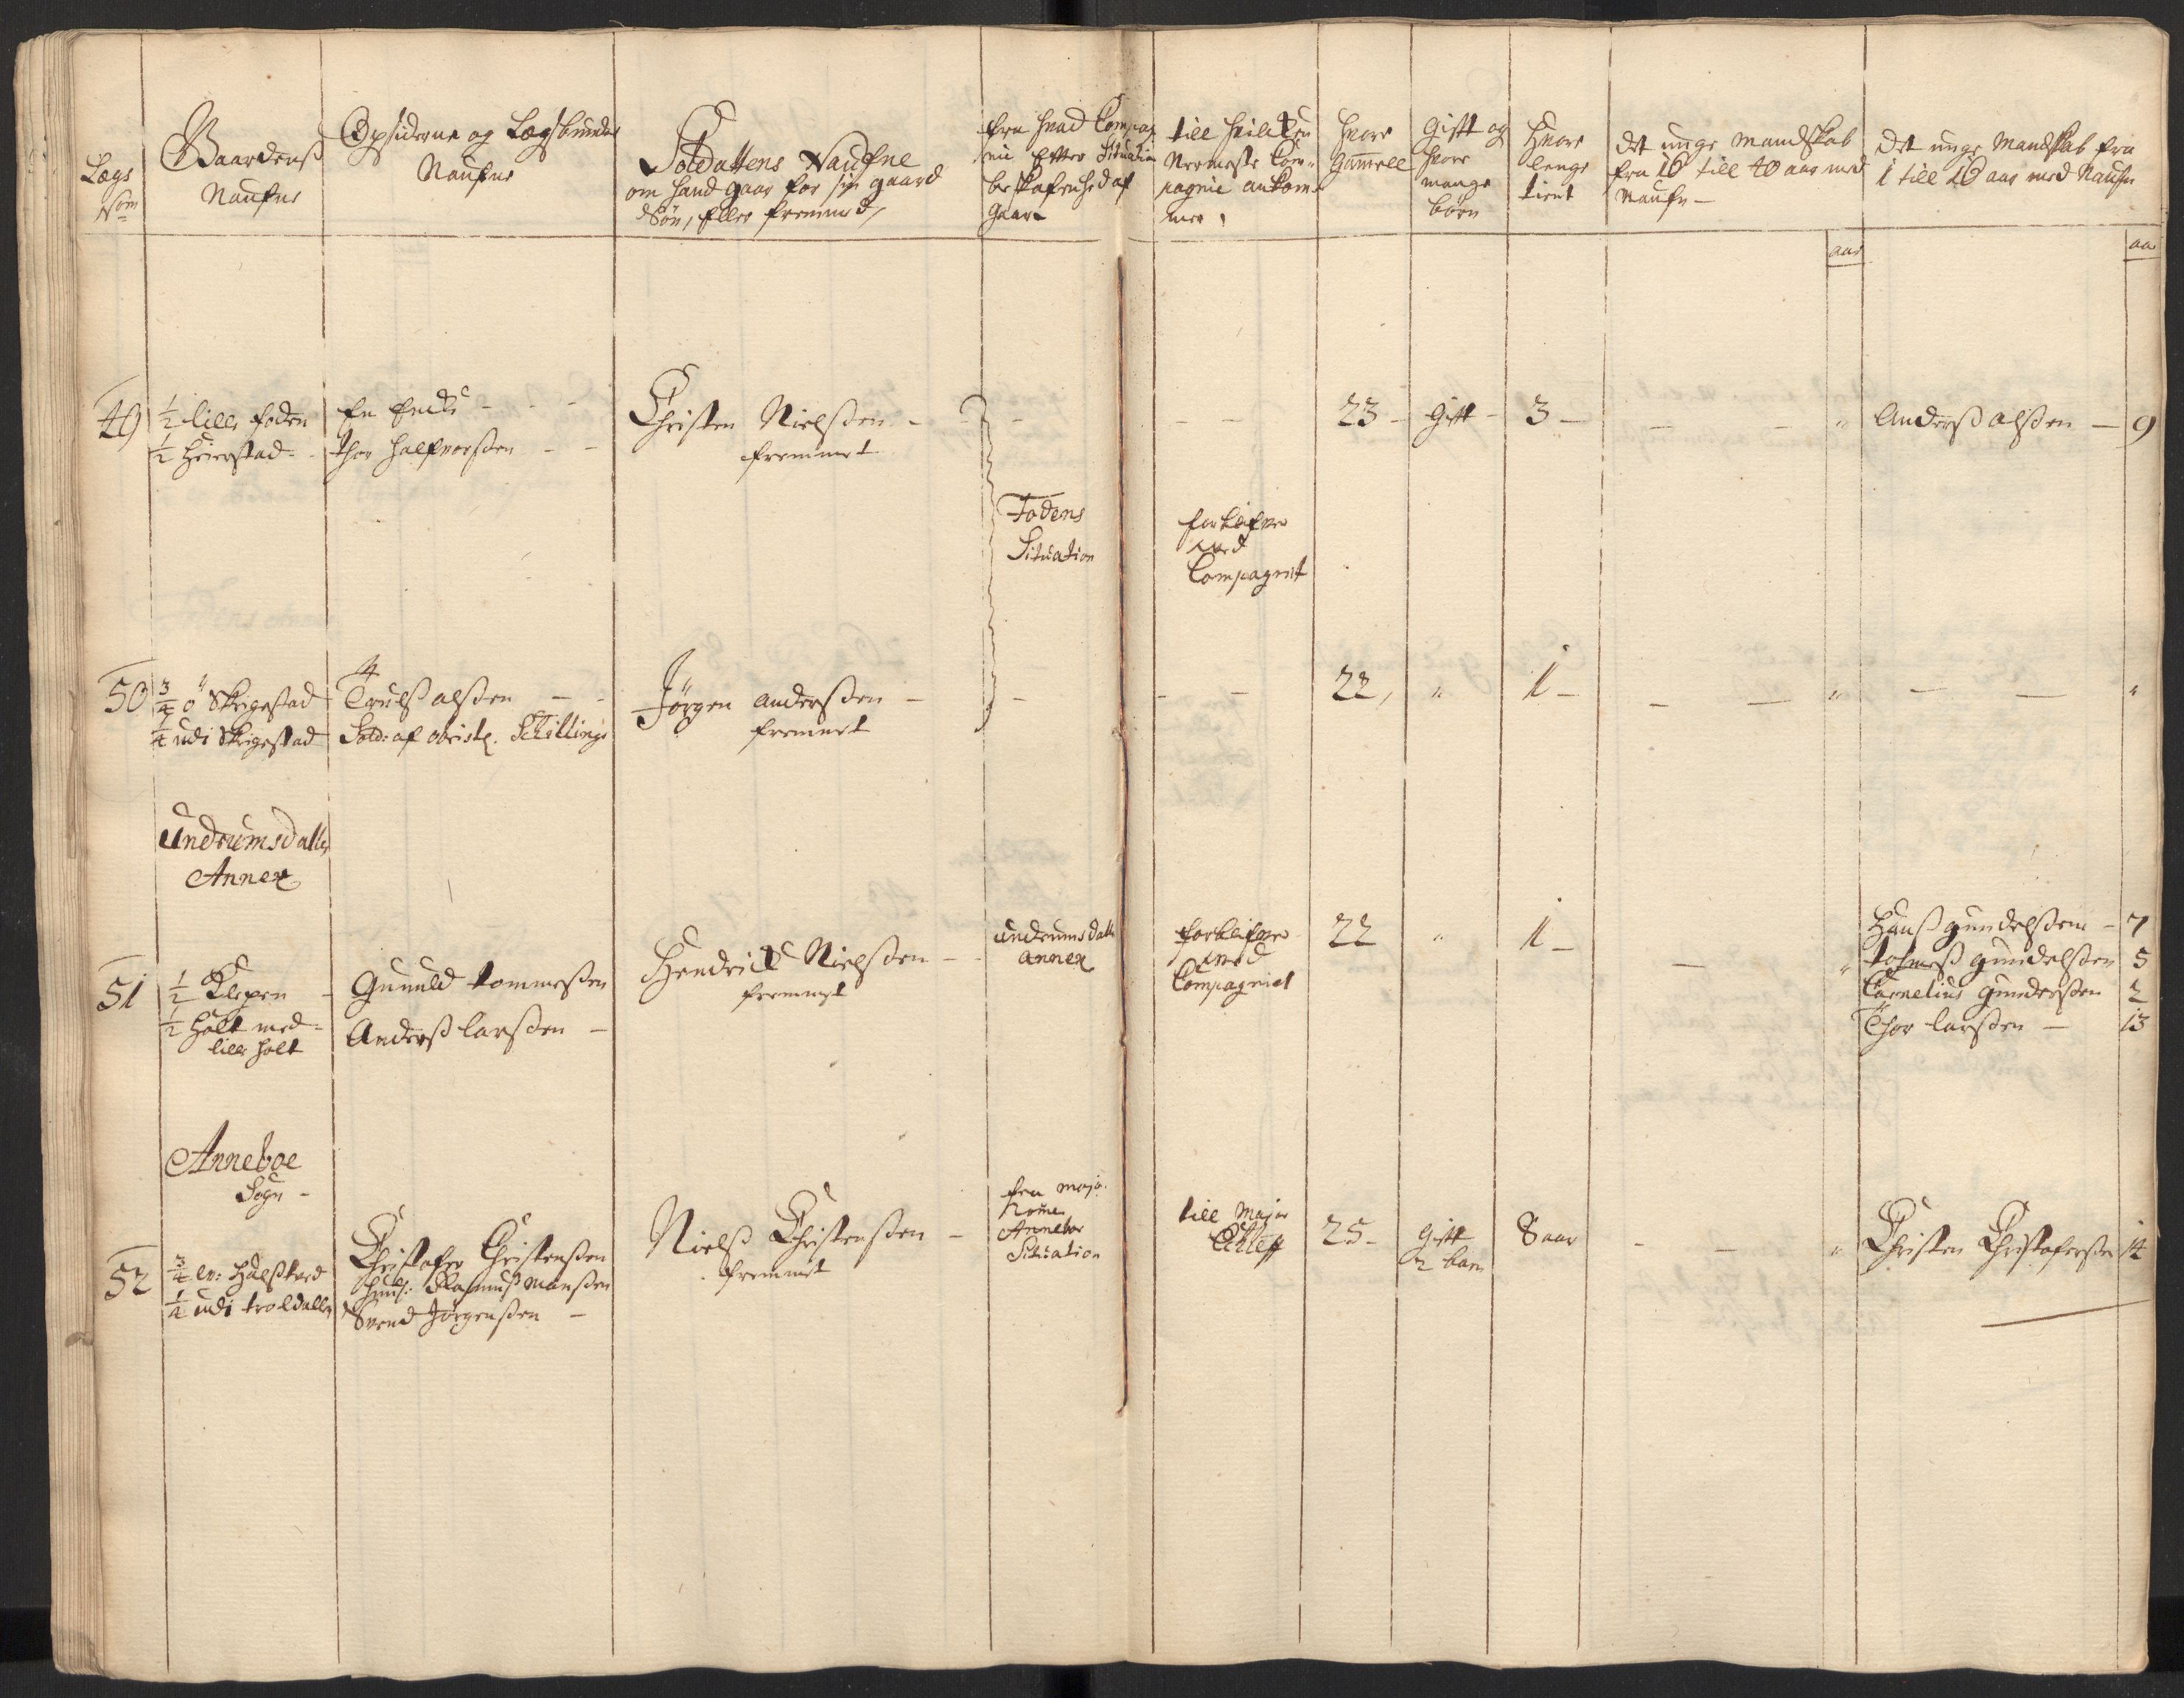 Lægs
No
Gaardenß
Naufne
Opsiderne og Lægsbunder
Naufne
Soldattens Naufne
om hand gaar for sin gaard
Sön, Eller fremmed,
fra hvad Compag
nie Efter Situation
beskafenhed af
gaar
till hvilken
Nermeste Com-
pagnie ankom-
mer,
hvor
gammell
Gift og
hvor
mange
börn
Hvor
lenge
tient
Det unge Mandskab
fra 16 till 40 aar med
Naufn
aar
Det unge Mandskab fra
1 till 16 aar med Naufn
aar
49
1/2 lille foden
1/2 Heierstad
En Encke
Thor halfvorßen
Christen Nielßen
fremmet
23
gift
3
Anderß alßen
9
Fodens
Situation
forblifver
ved
Compagniet
50
3/4 ö Skrigestad
1/4 udi Skrigestad
Trulß alßen
Sold: af obristl. Schillings
Jörgen anderßen
fremmet
22
1
Undrumsdalls
Annex
51
1/2 Klepen
1/2 Holt med
lille holt
Gunuld tommeßen
Anderß larßen
Hendrick Nielßen
fremmet
undrumsdalls
annex
forblifver
ved
Compagniet
22
1
Hanß gundelßen 7
tohmeß gundelßen 5
Cornelius gunderßen 2
Thor larßen 13
Anneboe
Sogn
52
3/4 Halßkard
1/4 udi troldalle
Christofer Christenßen
huusf: Rasmuß Manßen
Svend Jörgenßen
Nielß Christenßen
fremmet
fra major
Annebor
Situation
till Major
25
gift
2 barn
8 aar
Christen Christoferßen 14